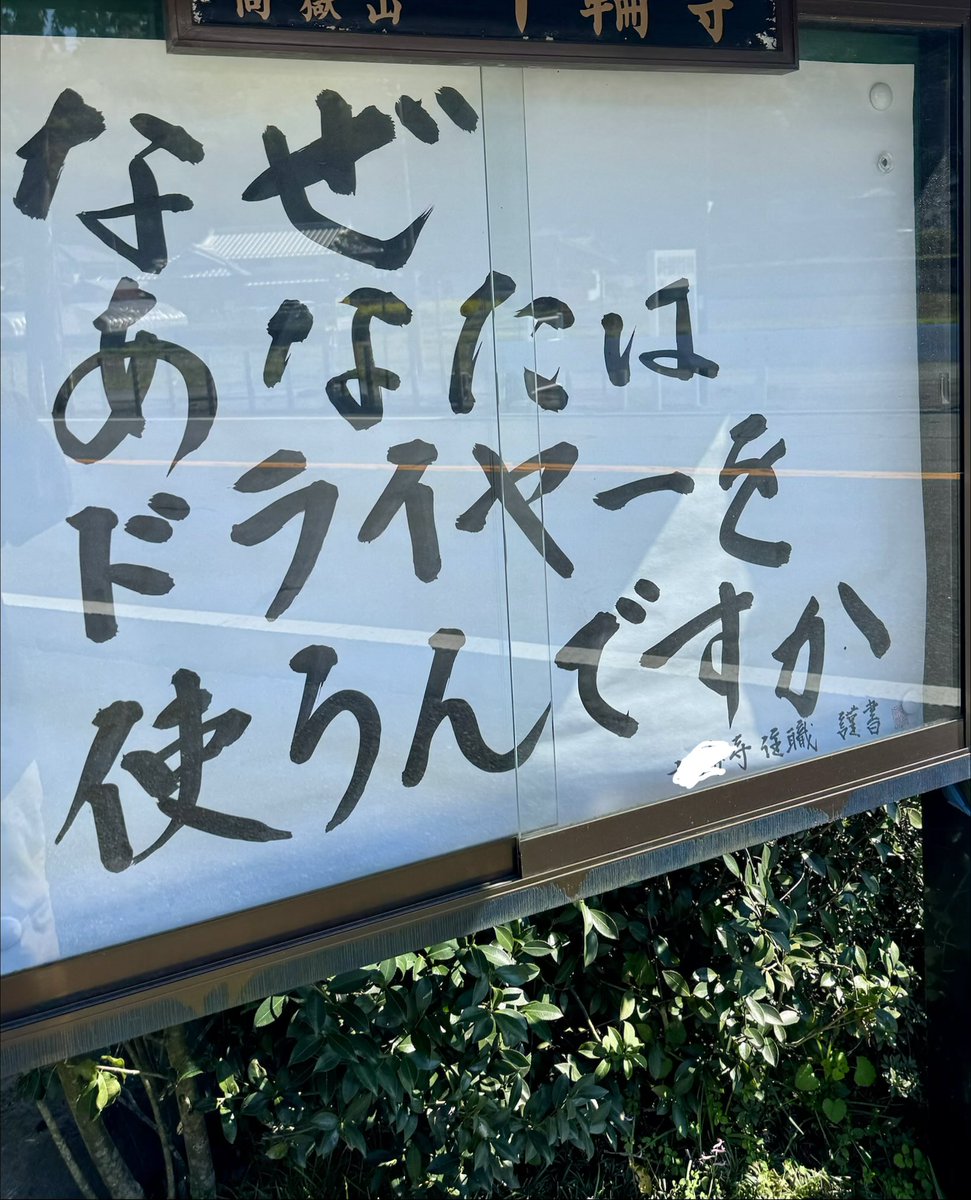 嶽山 輪寺
なぜ
あなたは
ドライヤーを
使うんですか
寺住職 謹書